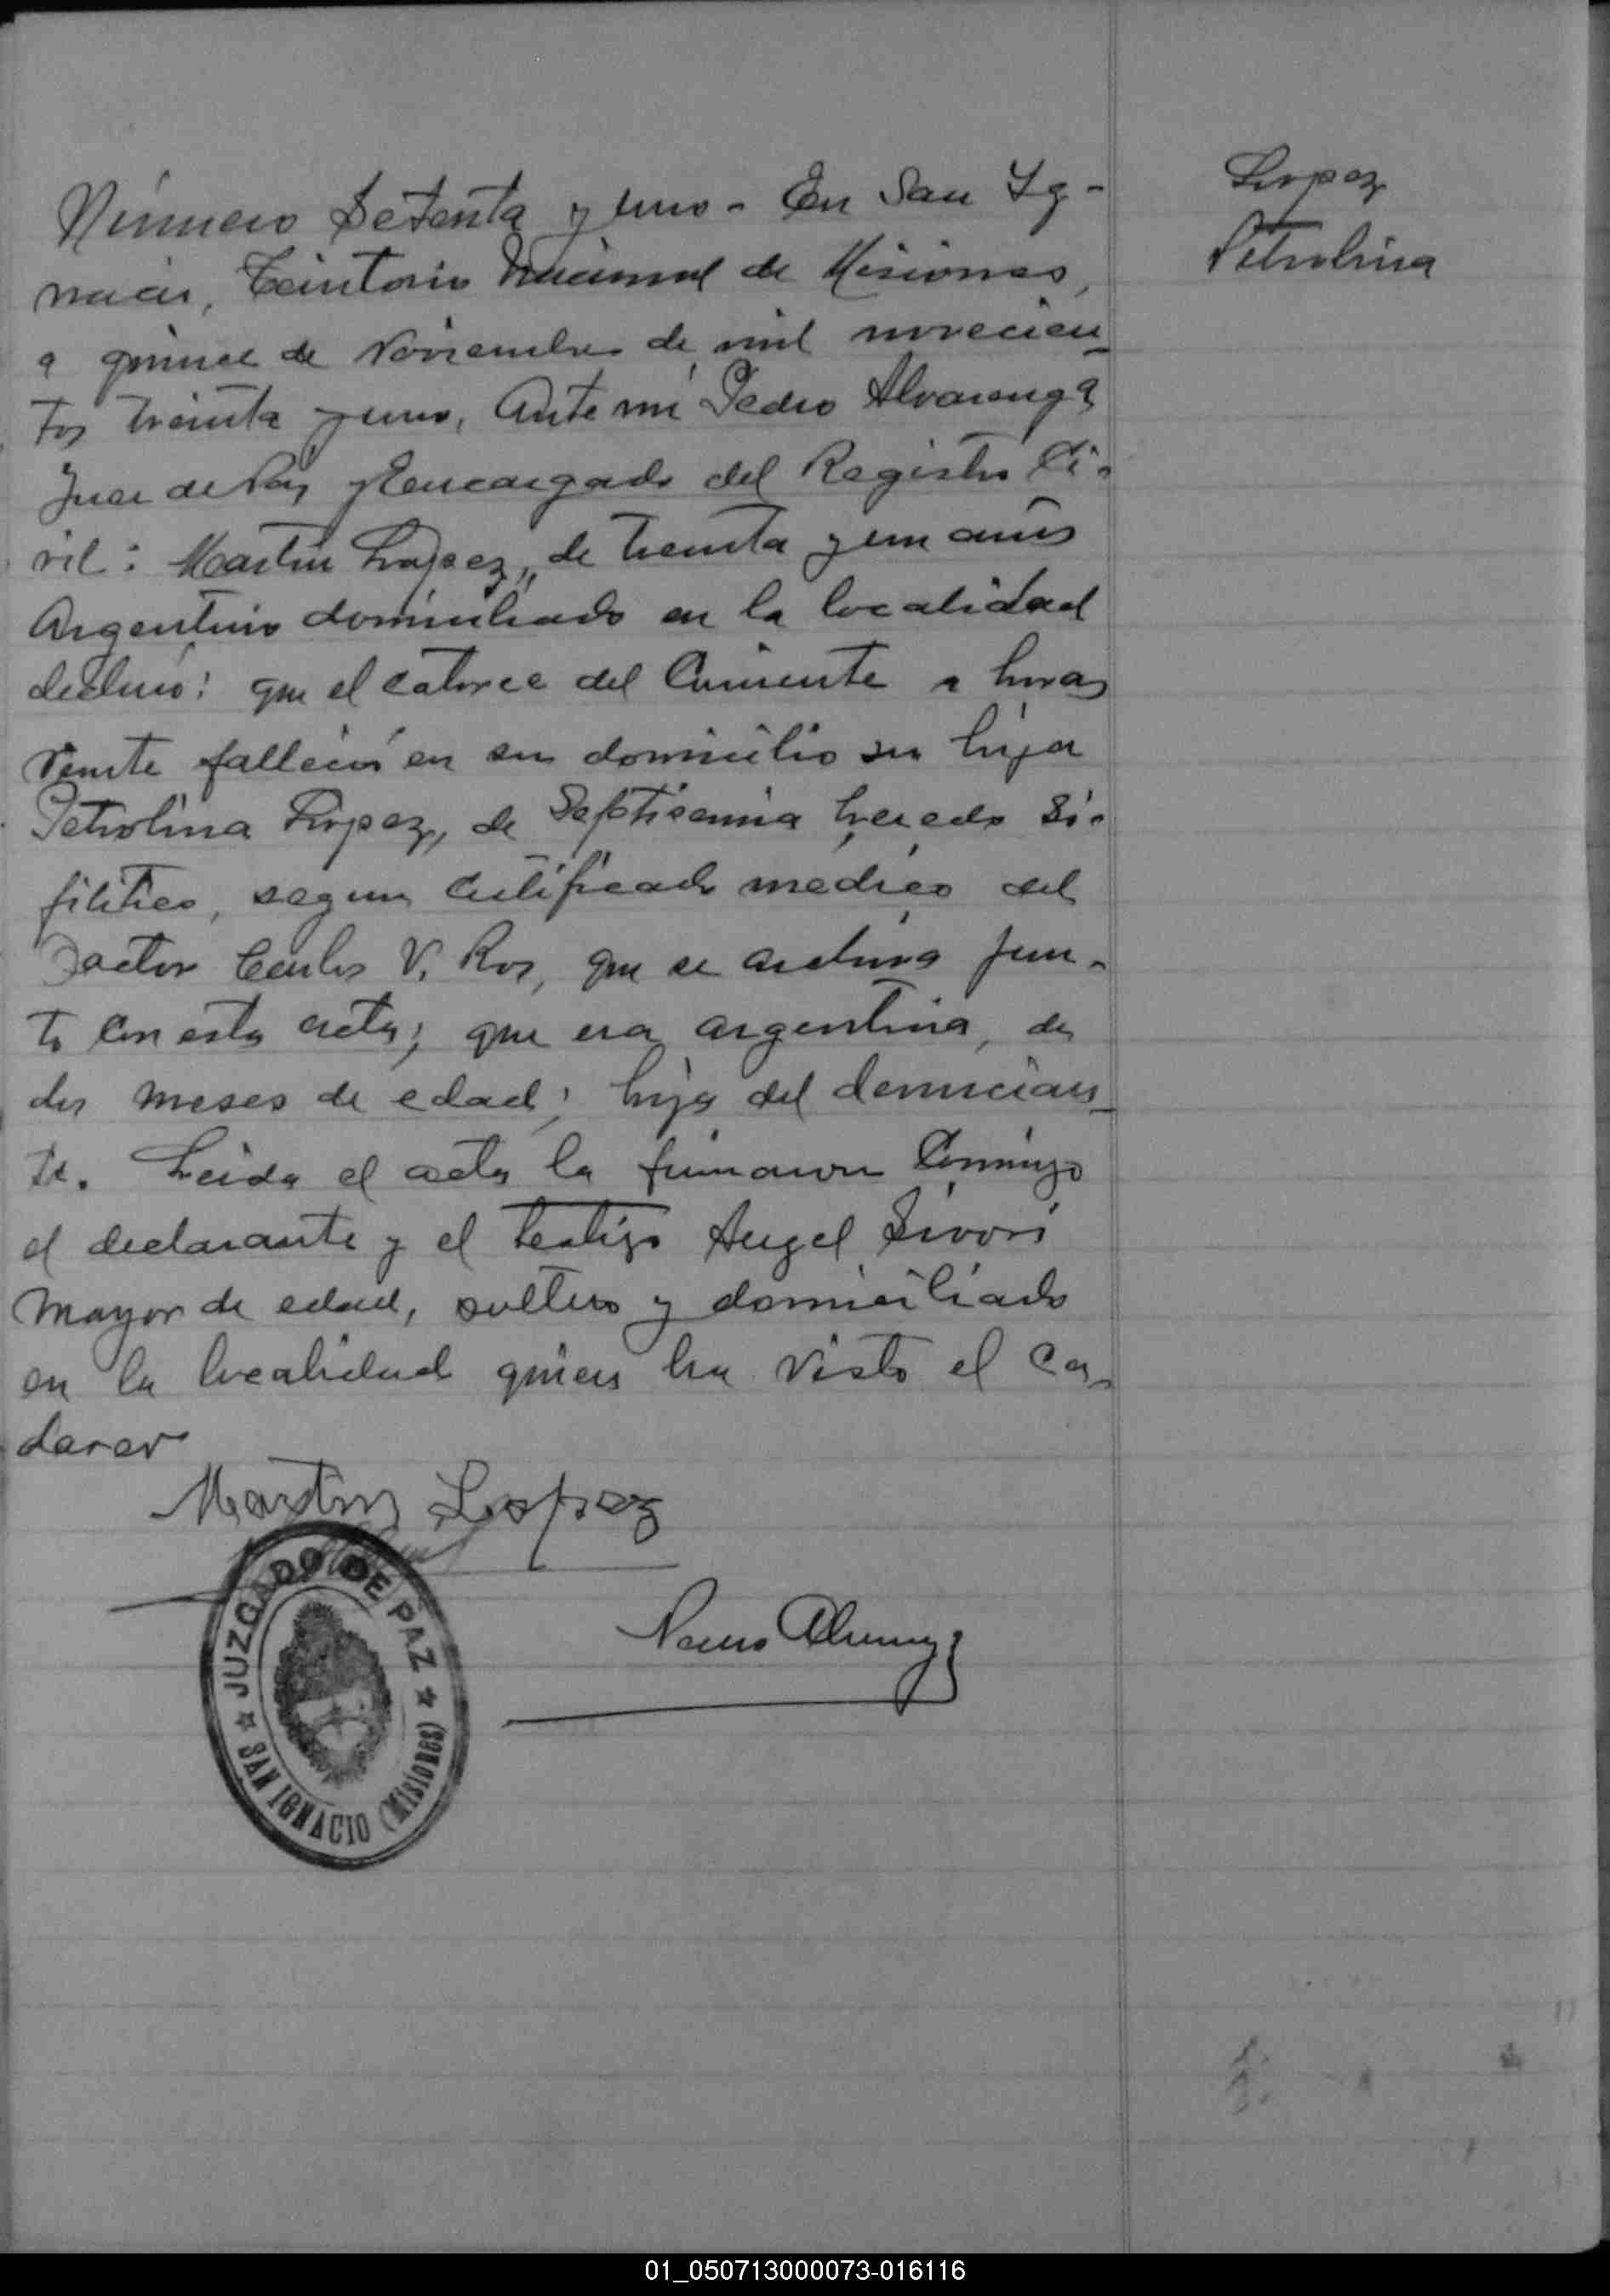 Lopez
Petrolina
Número Setenta y uno - En San Ig-
nacio, Territorio Nacional de Misiones,
a quince de Noviembre de mil novecien-
tos treinta y uno, Ante mi Pedro Alvarenga
Juez de Paz y Encargado del Registro Ci-
vil: Martin Lopez, de treinta y un años
Argentino domiciliado en la localidad
declaró: que el catorce del Corriente a horas
veinte falleció en su domicilio su hija
Petrolina Lopez, de Septicemia heredo si-
filitica, segun certificado medico del
Doctor Carlos V. Ros, que se archiva jun-
to con esta acta; que era argentina, de
dos meses de edad; hija del denuncian-
te. Leida el acta la firmaron Conmigo
el declarante y el testigo Angel Sivori
mayor de edad, soltero y domiciliado
en la localidad quien ha visto el ca-
daver
Martin Lopez
JUZGADO DE PAZ
SAN IGNACIO (MISIONES)
Pedro Alvarenga
01_050713000073-016116